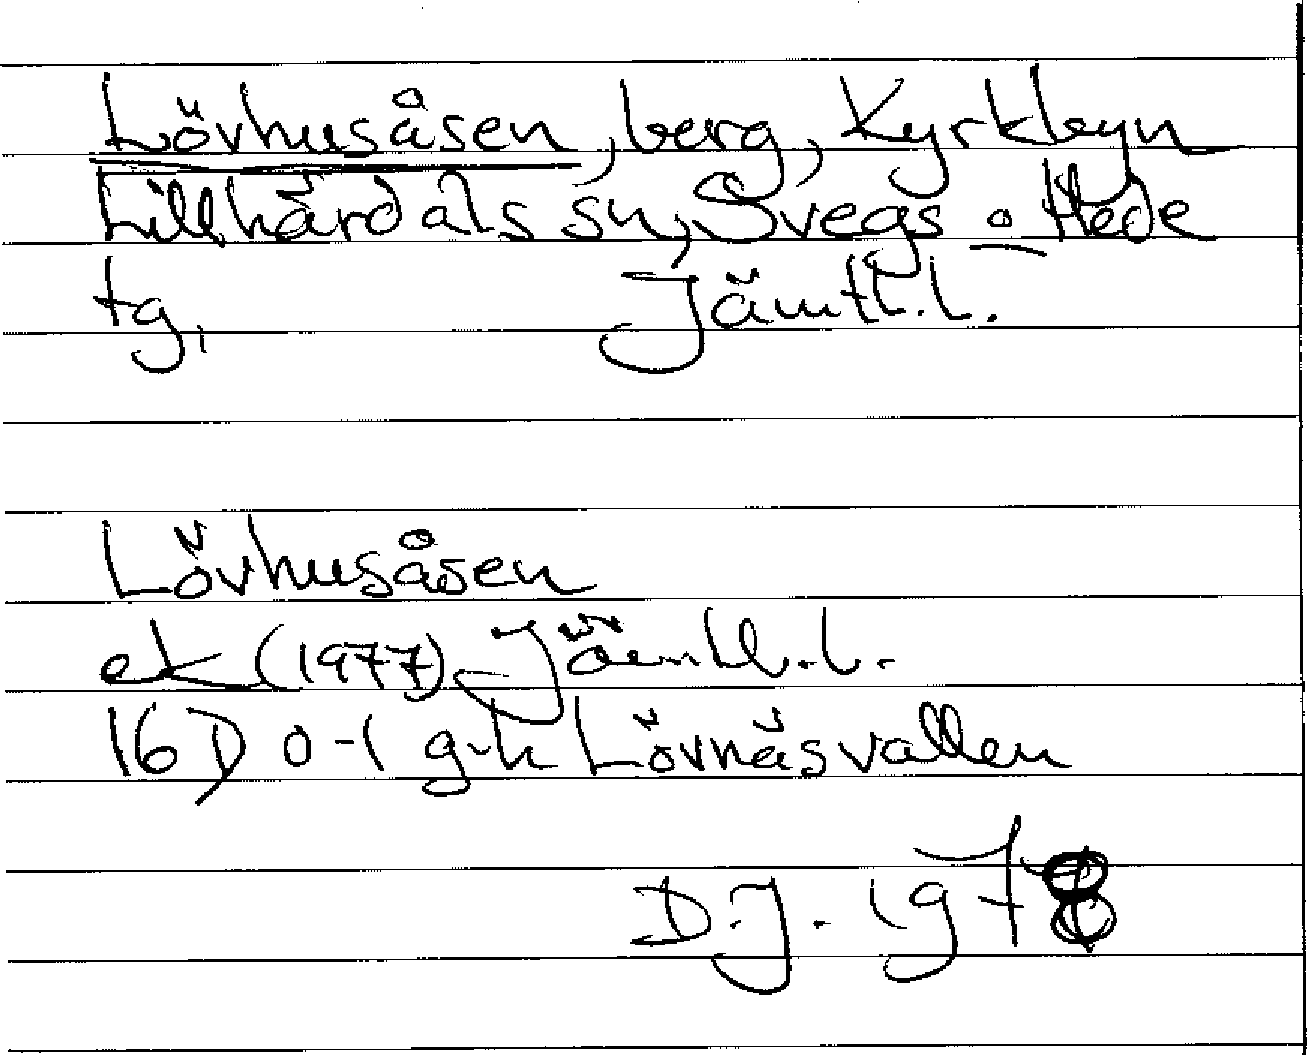 Lövhusåsen, berg, Kyrkbyn
Lillhärdals sn, Svegs o Hede
tg, Jämtl.l.
Lövhusåsen
ek (1977) Jämtl.l.
16D 0-1 g-h Lövnäsvallen
D.J. 1978